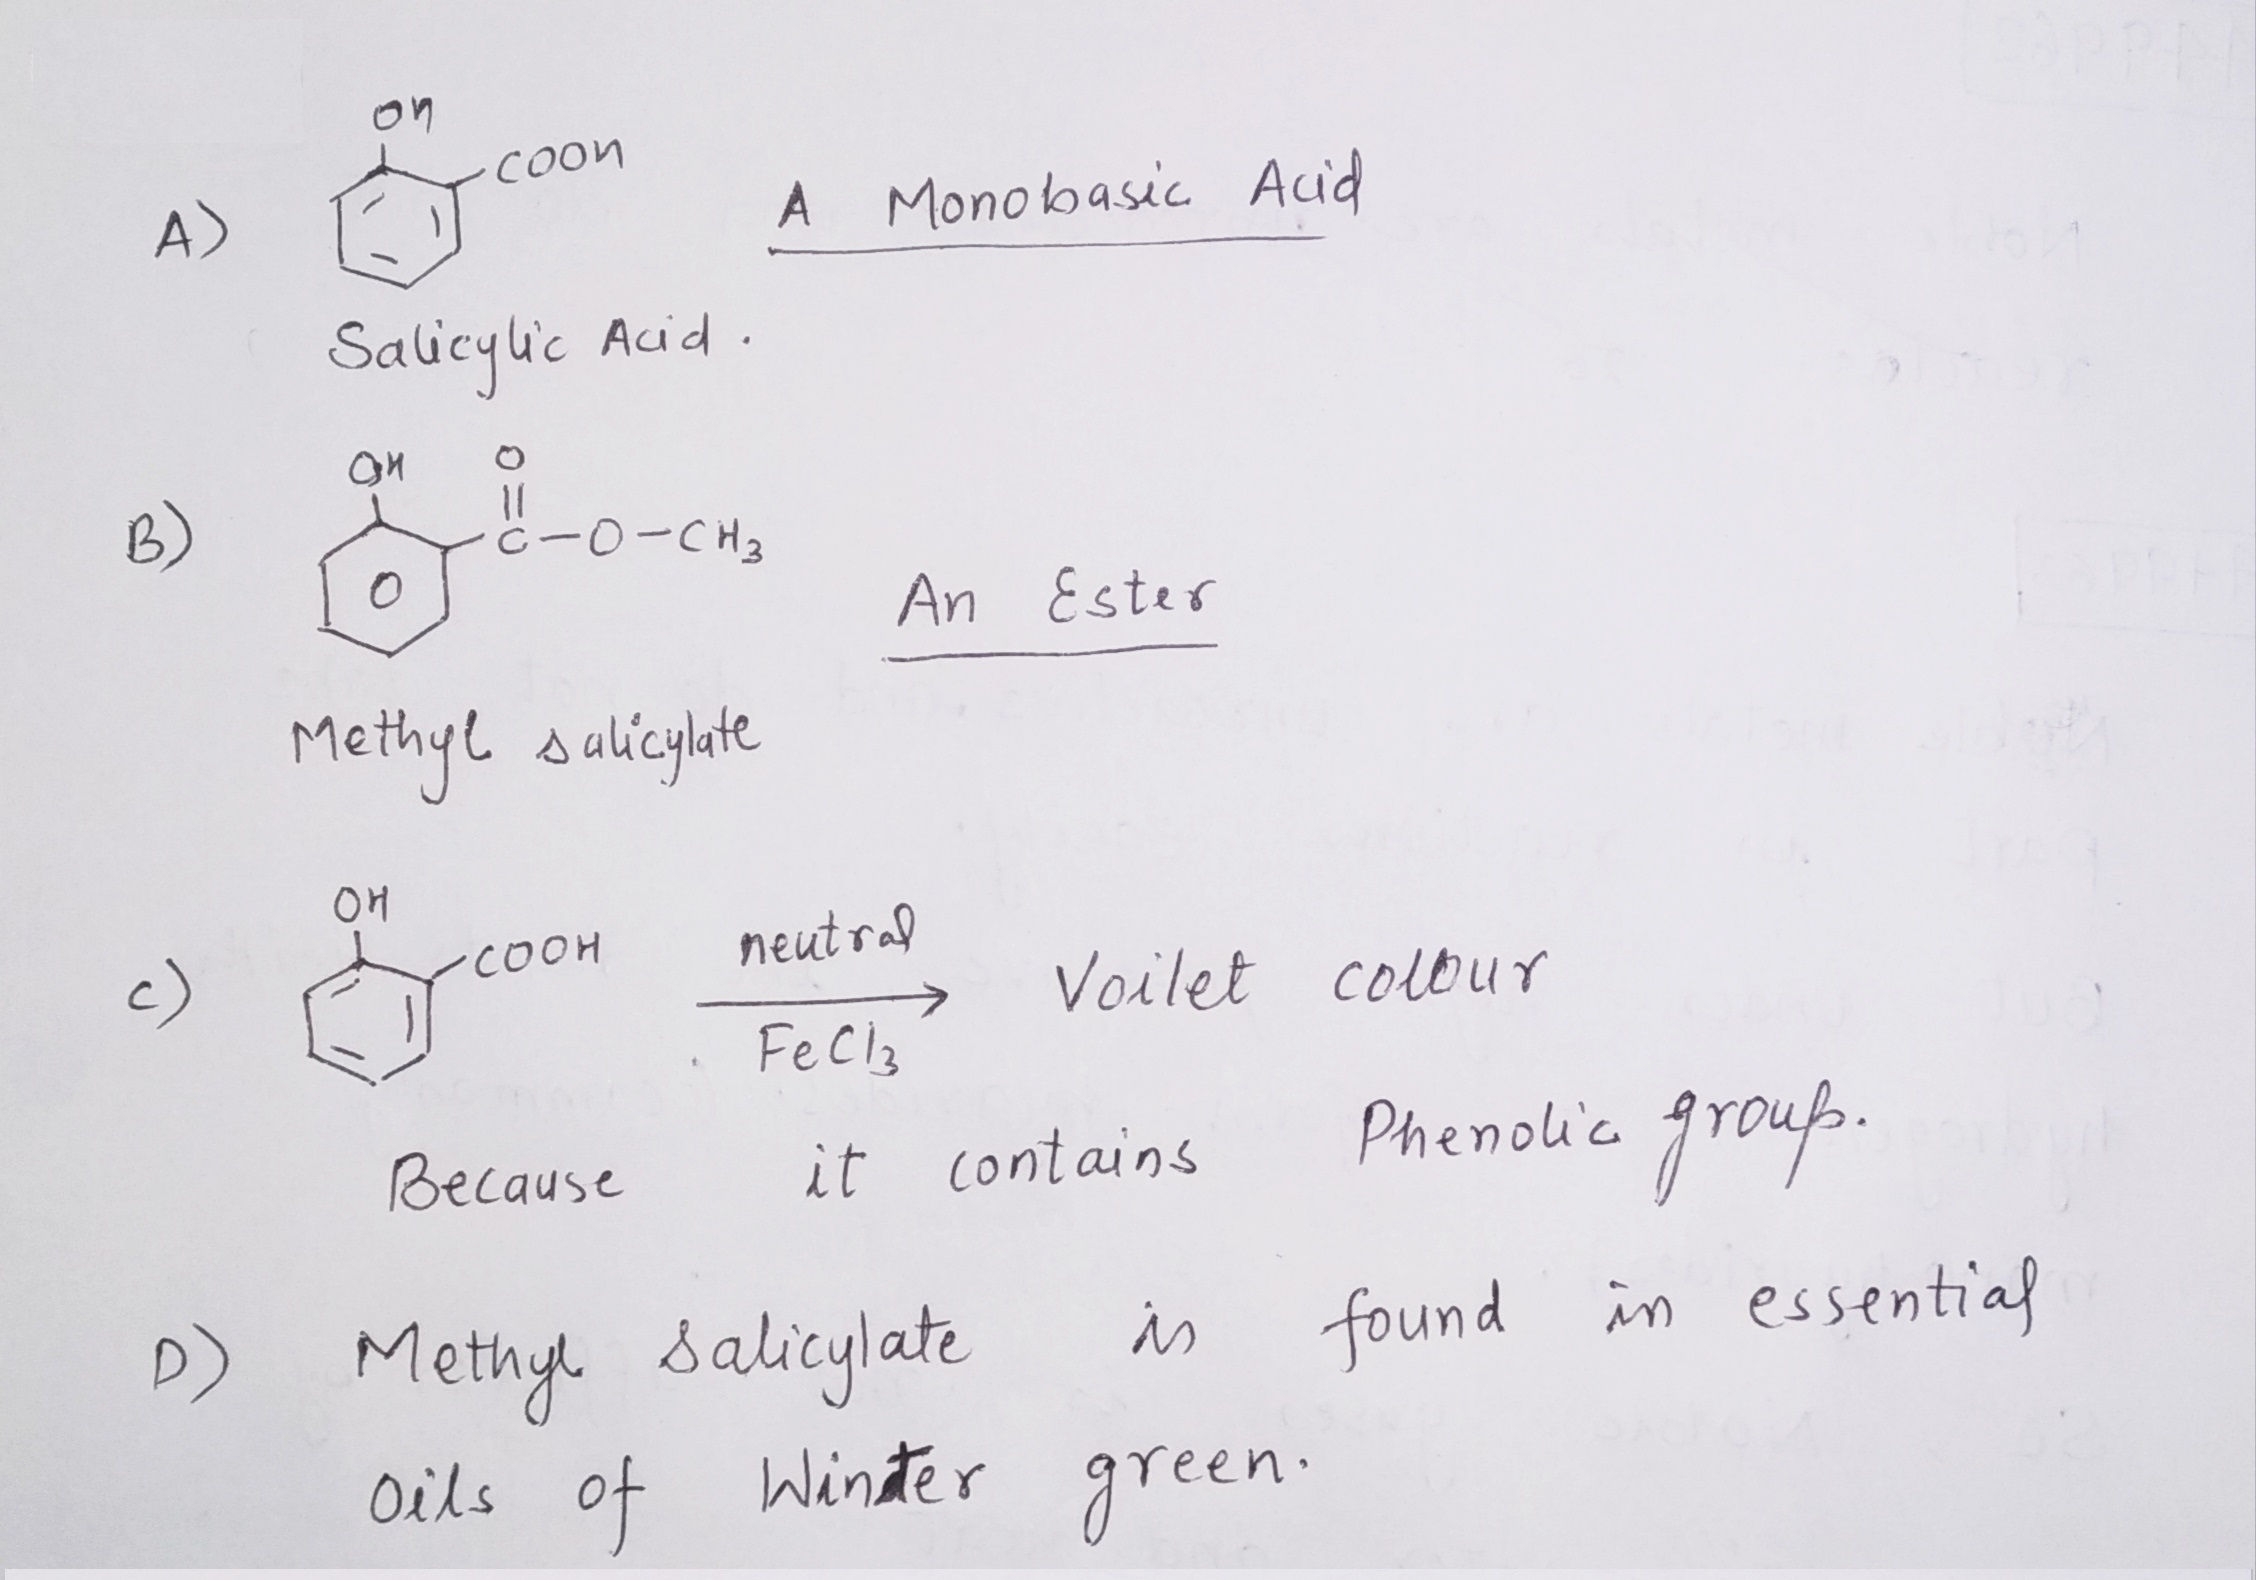 OH
COOH
A)
A Monobasic Acid
Salicylic Acid.
OH O
||
B)
C-O-CH3
An Ester
Methyl salicylate
OH
COOH
C)
neutral
FeCl3
Voilet colour
Because it contains Phenolic group.
D) Methyl Salicylate is found in essential
Oils of Winter green.